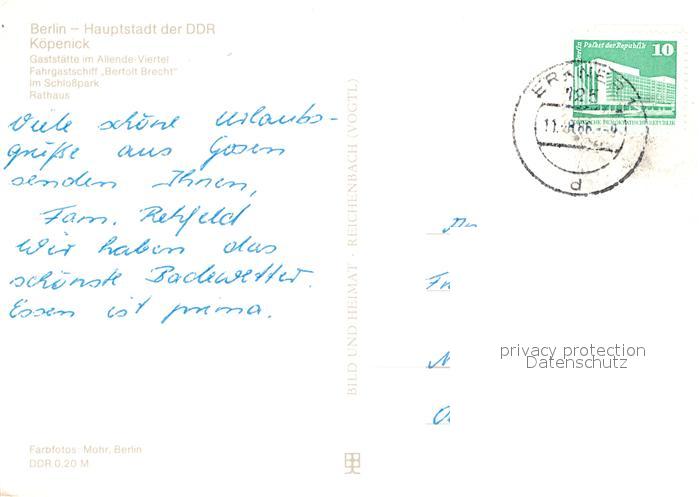 Berlin – Hauptstadt der DDR
Köpenick
Gaststätte im Allende-Viertel
Fahrgastschiff „Bertolt Brecht"
Im Schloßpark
Rathaus
Viele schöne Urlaubs-
grüße aus Gosen
senden Ihnen,
Fam. Rehfeld
Wir haben das
schönste Badewetter.
Essen ist prima.
Farbfotos: Mohr, Berlin
DDR 0,20 M
BILD UND HEIMAT · REICHENBACH (VOGTL)
Berlin Palast der Republik 10
DEUTSCHE DEMOKRATISCHE REPUBLIK
ERKNER 1
125
d
An
privacy protection
Datenschutz